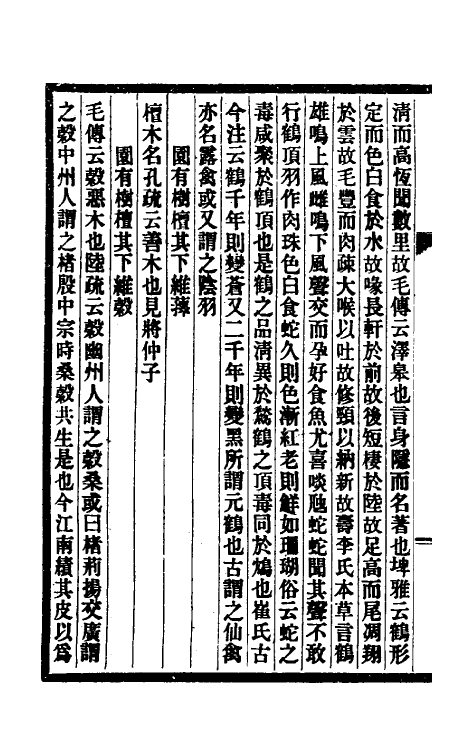 清而高恆聞數里故毛傳云澤皋也言身隱而名著也埤雅云鶴形
定而色白食於水故喙長軒於前故後短棲於陸故足高而尾凋翔
於雲故毛豐而肉疎大喉以吐故修頸以納新故壽李氏本草言鶴
雄鳴上風雌鳴下風聲交而孕好食魚尤喜啖虺蛇蛇聞其聲不敢
行鶴頂羽作肉珠色白食蛇久則色漸紅老則鮮如珊瑚俗云蛇之
毒咸聚於鶴頂也是鶴之品清異於鶖鶴之頂毒同於鴆也崔氏古
今注云鶴千年則變蒼又二千年則變黑所謂元鶴也古謂之仙禽
亦名露禽或又謂之陰羽
園有樹檀其下維蘀
檀木名孔疏云善木也見將仲子
園有樹檀其下維穀
毛傳云穀惡木也陸疏云穀幽州人謂之穀桑或曰楮荊揚交廣謂
之穀中州人謂之楮殷中宗時桑穀共生是也今江南績其皮以為